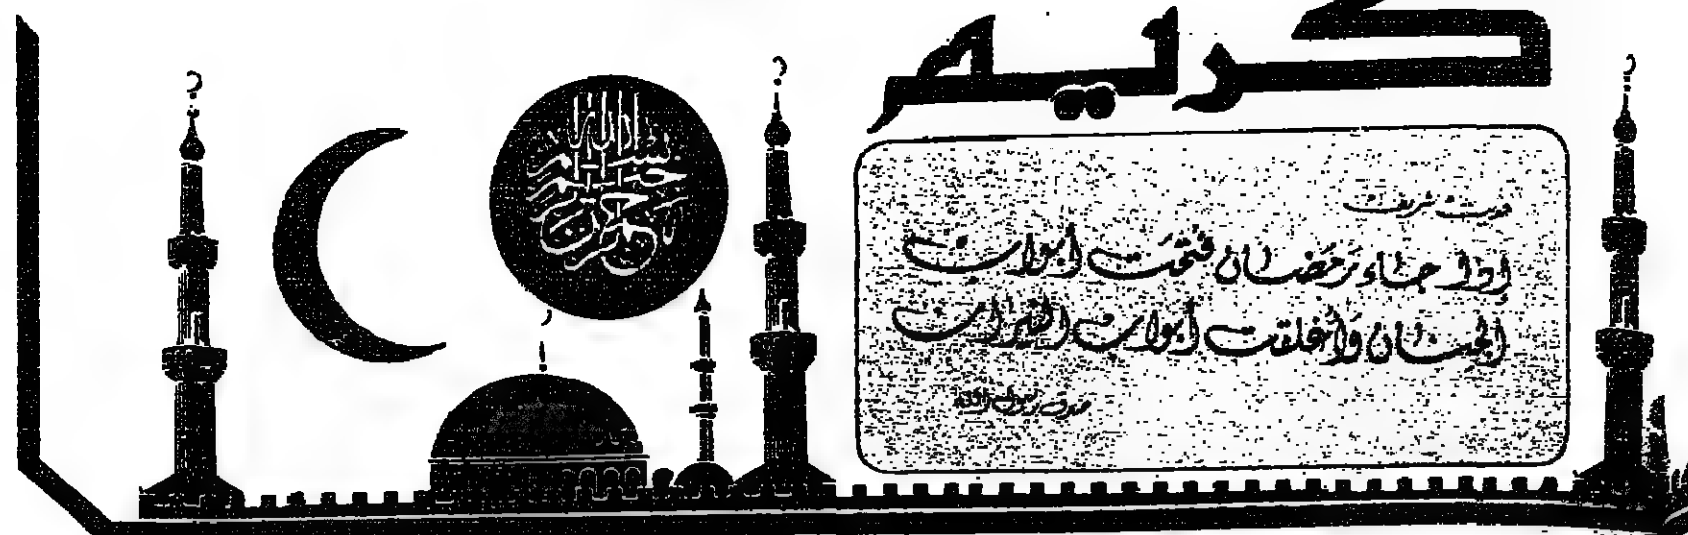 كريم
بسم الله الرحمن الرحيم
حديث شريف
إذا جاء رَمَضَان فُتّحَت أبواب
الجنان وَأُغلقت أبواب النيران
صدق رسول الله